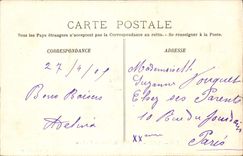 CARTE POSTALE
Tous les Pays étrangers n'acceptent pas la Correspondance au recto. - Se renseigner à la Poste.
CORRESPONDANCE
ADRESSE
27/4/09
Bons Baisers
Mademoiselle
Suzanne Fouquet
Chez ses Parents
10 Rue du Jourdain
XXème
Paris